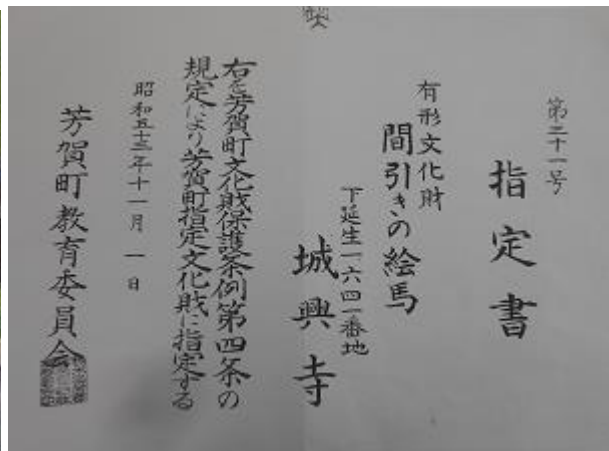 第二十一号
指定書
有形文化財
間引きの絵馬
下延生一六四一番地
城興寺
右を芳賀町文化財保護条例第四条の
規定により芳賀町指定文化財に指定する
昭和五十三年十一月一日
芳賀町教育委員会